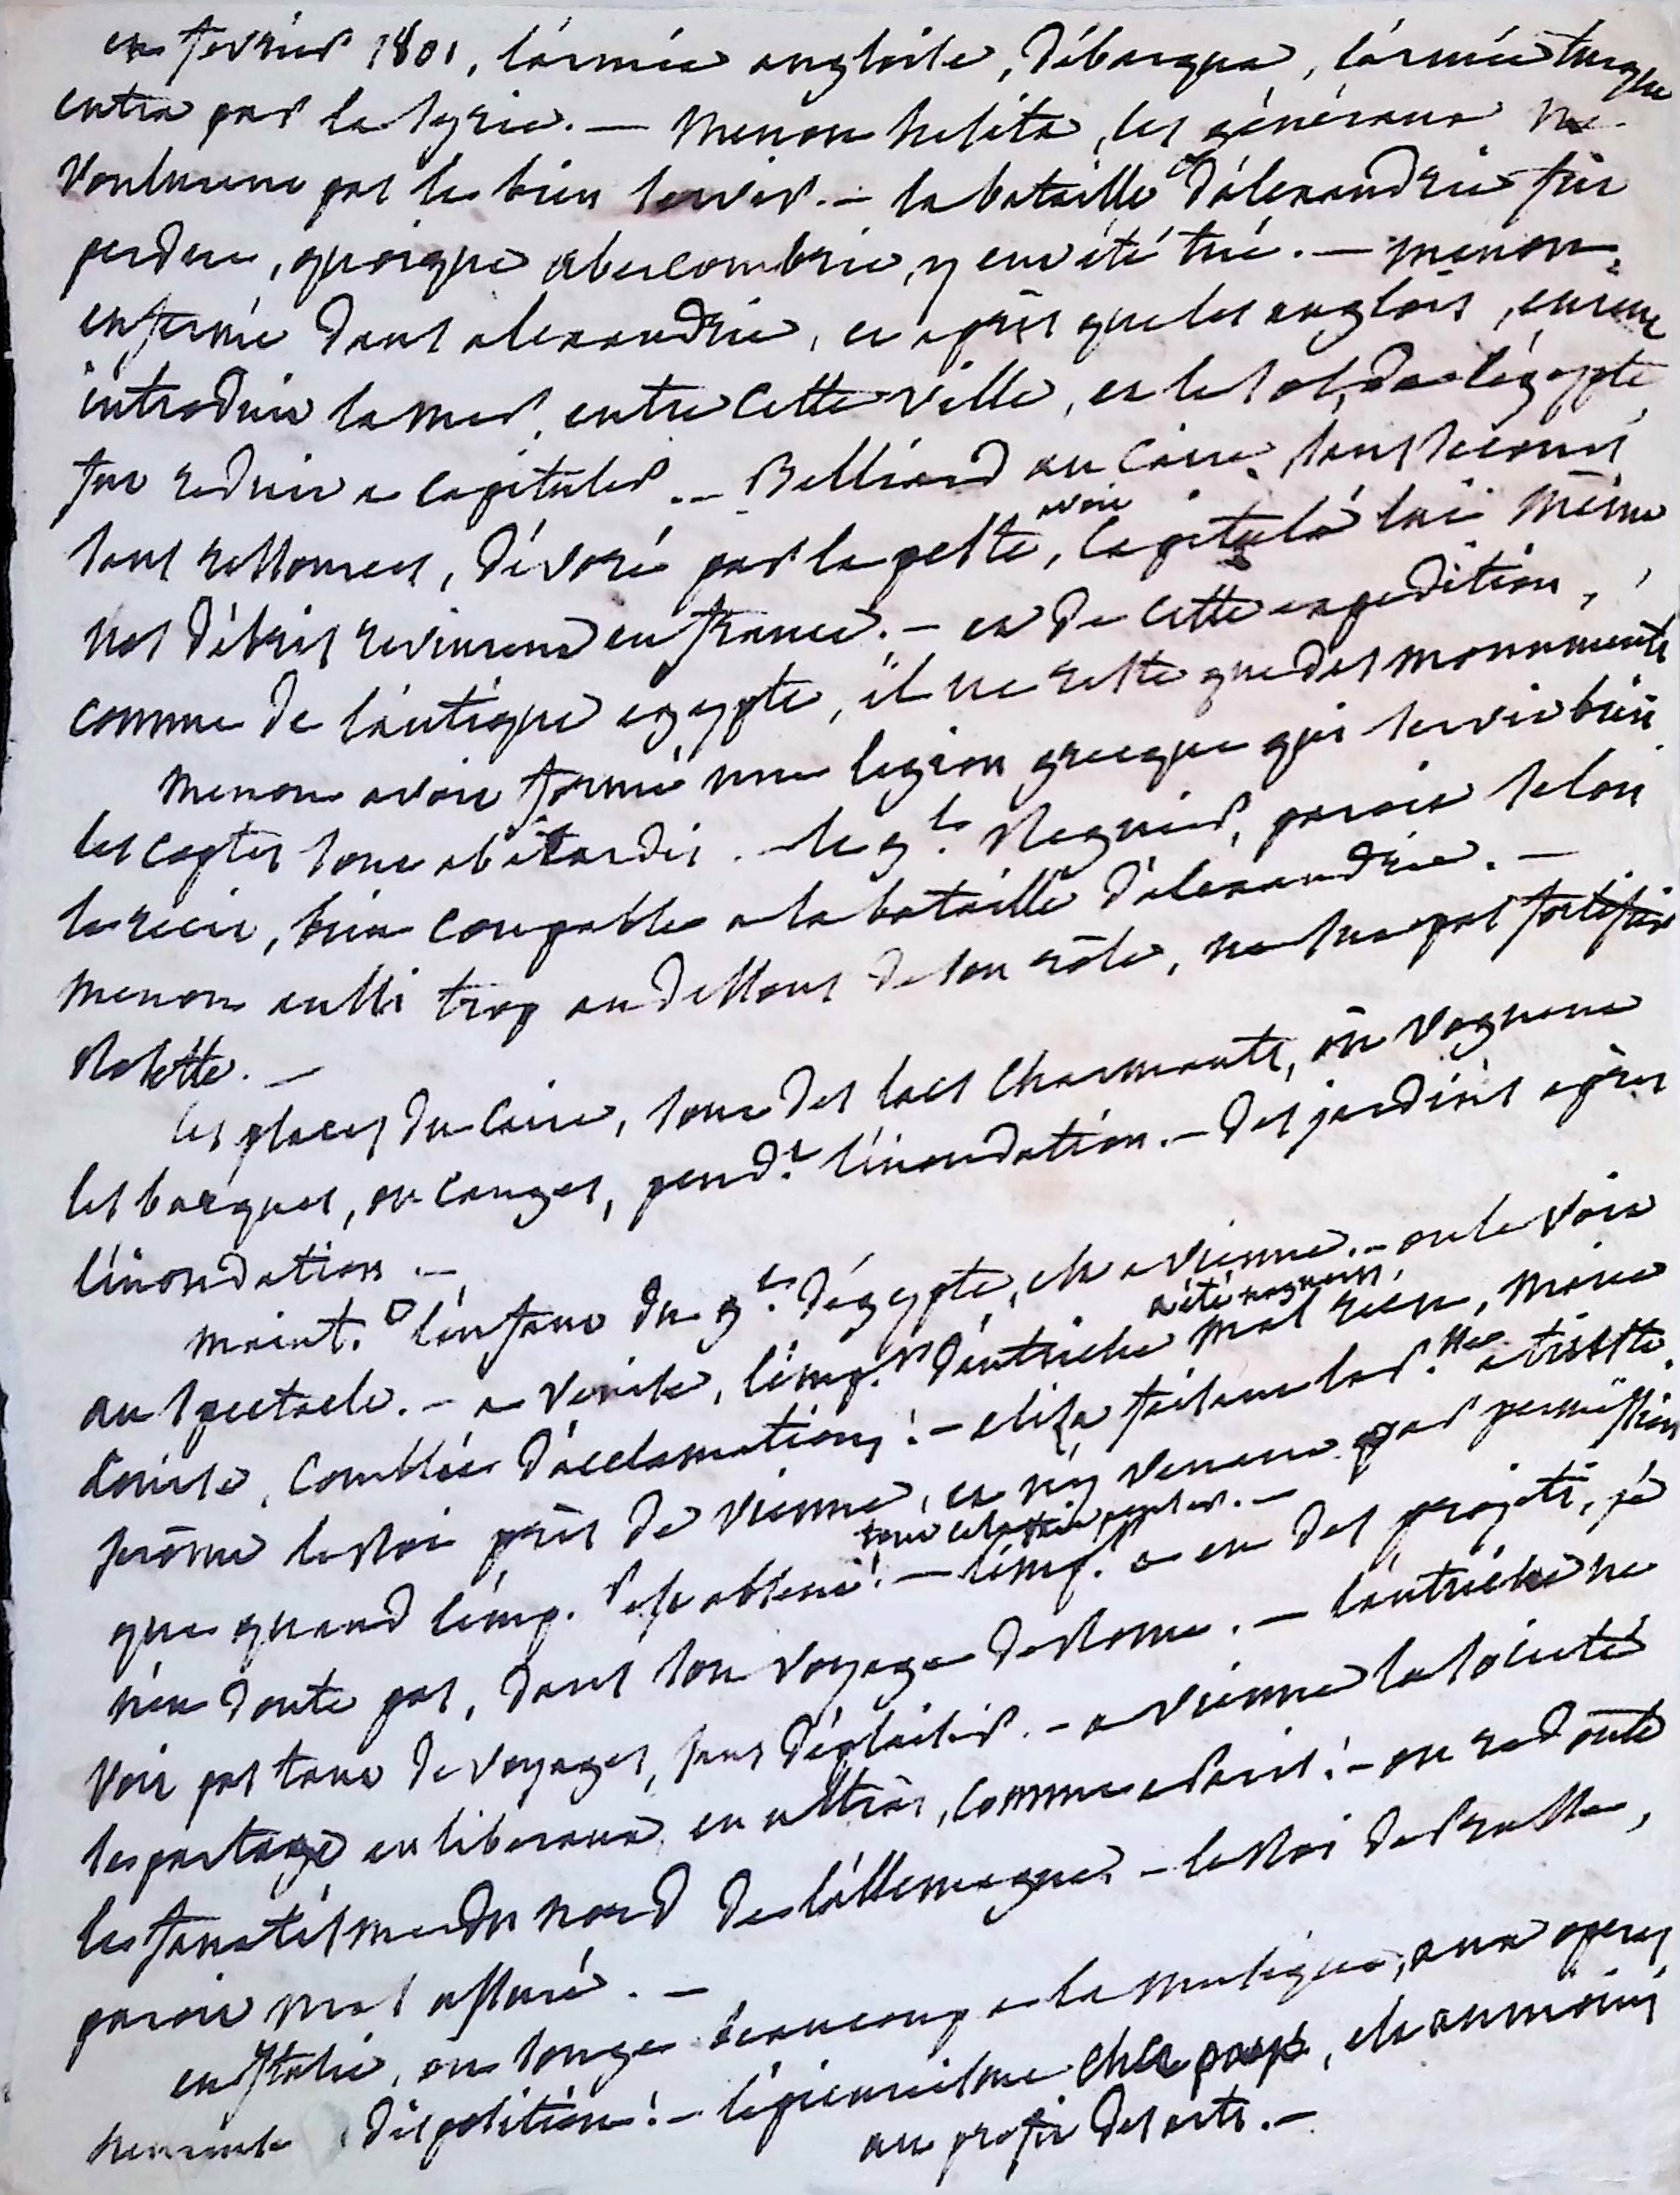 en fevrier 1801, l'armée angloise, débarqua, l'armée turque
entra par la syrie. — Menou hésita, les généraux ne
voulurent pas le bien servir. — la bataille d'alexandrie fut
perdue, quoique abercombrie, y eut été tué. — menou,
enfermé dans alexandrie, et après que les anglois, eurent
introduit la mer, entre cette ville, et le sol de l'égypte,
fut reduit a capituler. — Belliard au Caire, sans secours,
sans ressources, dévoré par la peste, avoit capitulé lui même
nos débris revinrent en france. — et de cette expedition,
comme de l'antique egypte, il ne reste que des monuments
menou avoit formé une legion grecque qui servit bien
les coptes sont abâtardis. — le g.l Regnier, paroit selon
le recit, bien coupable a la bataille d'alexandrie. —
menou aussi trop au dessous de son rôle, ne sut pas fortifier
Rosette. —
les places du Caire, sont des lacs charmants, où voguent
les barques, ou canges, pend.t l'inondation. — des jardins après
l'inondation. —
maint.t l'enfant du g.l d'égypte, est a vienne. — on le voit
au spectacle. — a Venise, l'emp.r d'autriche a été mal reçu, marie
Louise, comblée d'acclamations! — elisa a trieste.
jerôme le Roi près de vienne, et n'y venant que par permission
que quand l'emp.r est absent! — l'emp.r a eu des projets, je
n'en doute pas, dans son voyage de Rome. — l'autriche ne
voit pas tant de voyages, sans déplaisir. — a vienne la société
se partage en liberaux, en ultras, comme a Paris! — on redoute
le fanatisme du nord de l'allemagne. — le Roi de Prusse,
paroit mal assuré. —
en Italie, on songe beaucoup a la musique, aux operas
heureuse disposition! — l'épicurisme chez , est au moins
au profit des arts. —